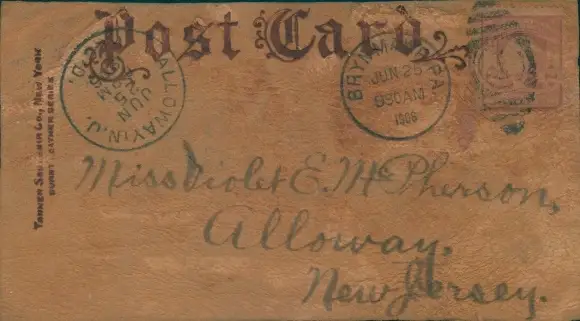 Post Card
TANNER SOUVENIR CO., NEW YORK
BURNT LEATHER SERIES
ALLOWAY, N.J.
JUN
25
BRYN MAWR, PA.
JUN 25
1906
Miss Violet E. McPherson,
Alloway,
New Jersey.